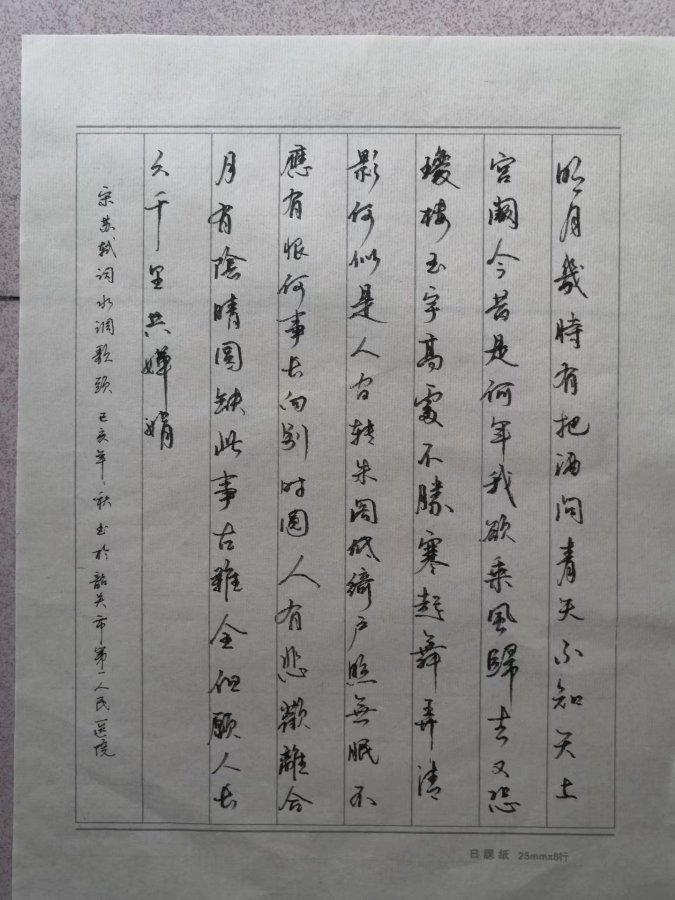 明月幾時有把酒问青天不知天上
宫阙今昔是何年我欲乘风歸去又恐
瓊楼玉宇高處不勝寒起舞弄清
影何似是人间转朱阁低绮户照無眠不
應有恨何事长向别时圆人有悲歡離合
月有陰晴圆缺此事古難全但願人长
久千里共嬋娟
宋苏轼词水调歌頭己亥年秋书於韶关市第一人民医院
日課纸 25mmx8行